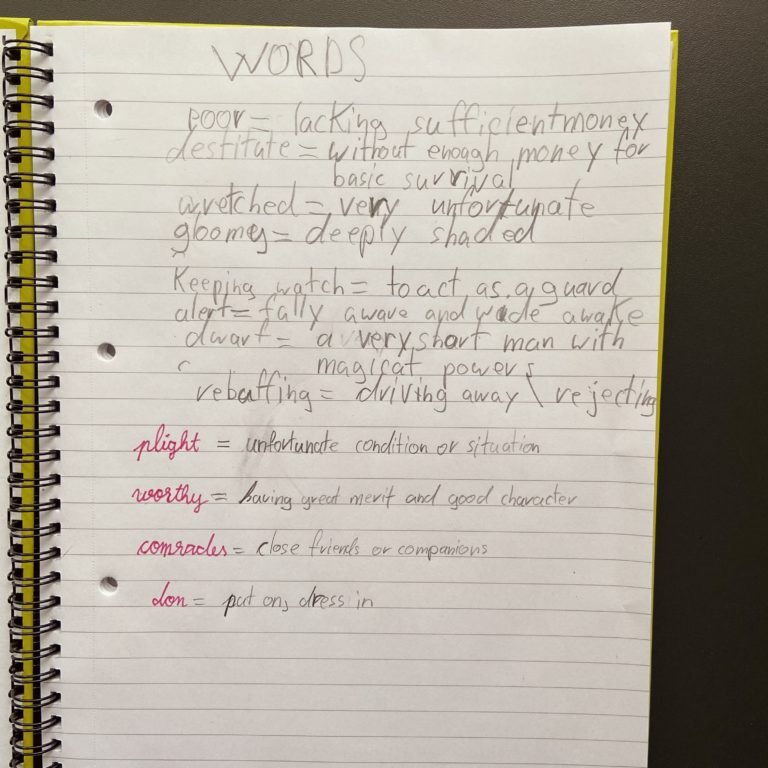 WORDS
poor = lacking sufficient money
destitute = without enough money for
basic survival
wretched = very unfortunate
gloomy = deeply shaded
Keeping watch = to act as a guard
alert = fully aware and wide awake
dwarf = a very short man with
magical powers
rebuffing = driving away \ rejecting
plight = unfortunate condition or situation
worthy = having great merit and good character
comrades = close friends or companions
don = put on, dress in